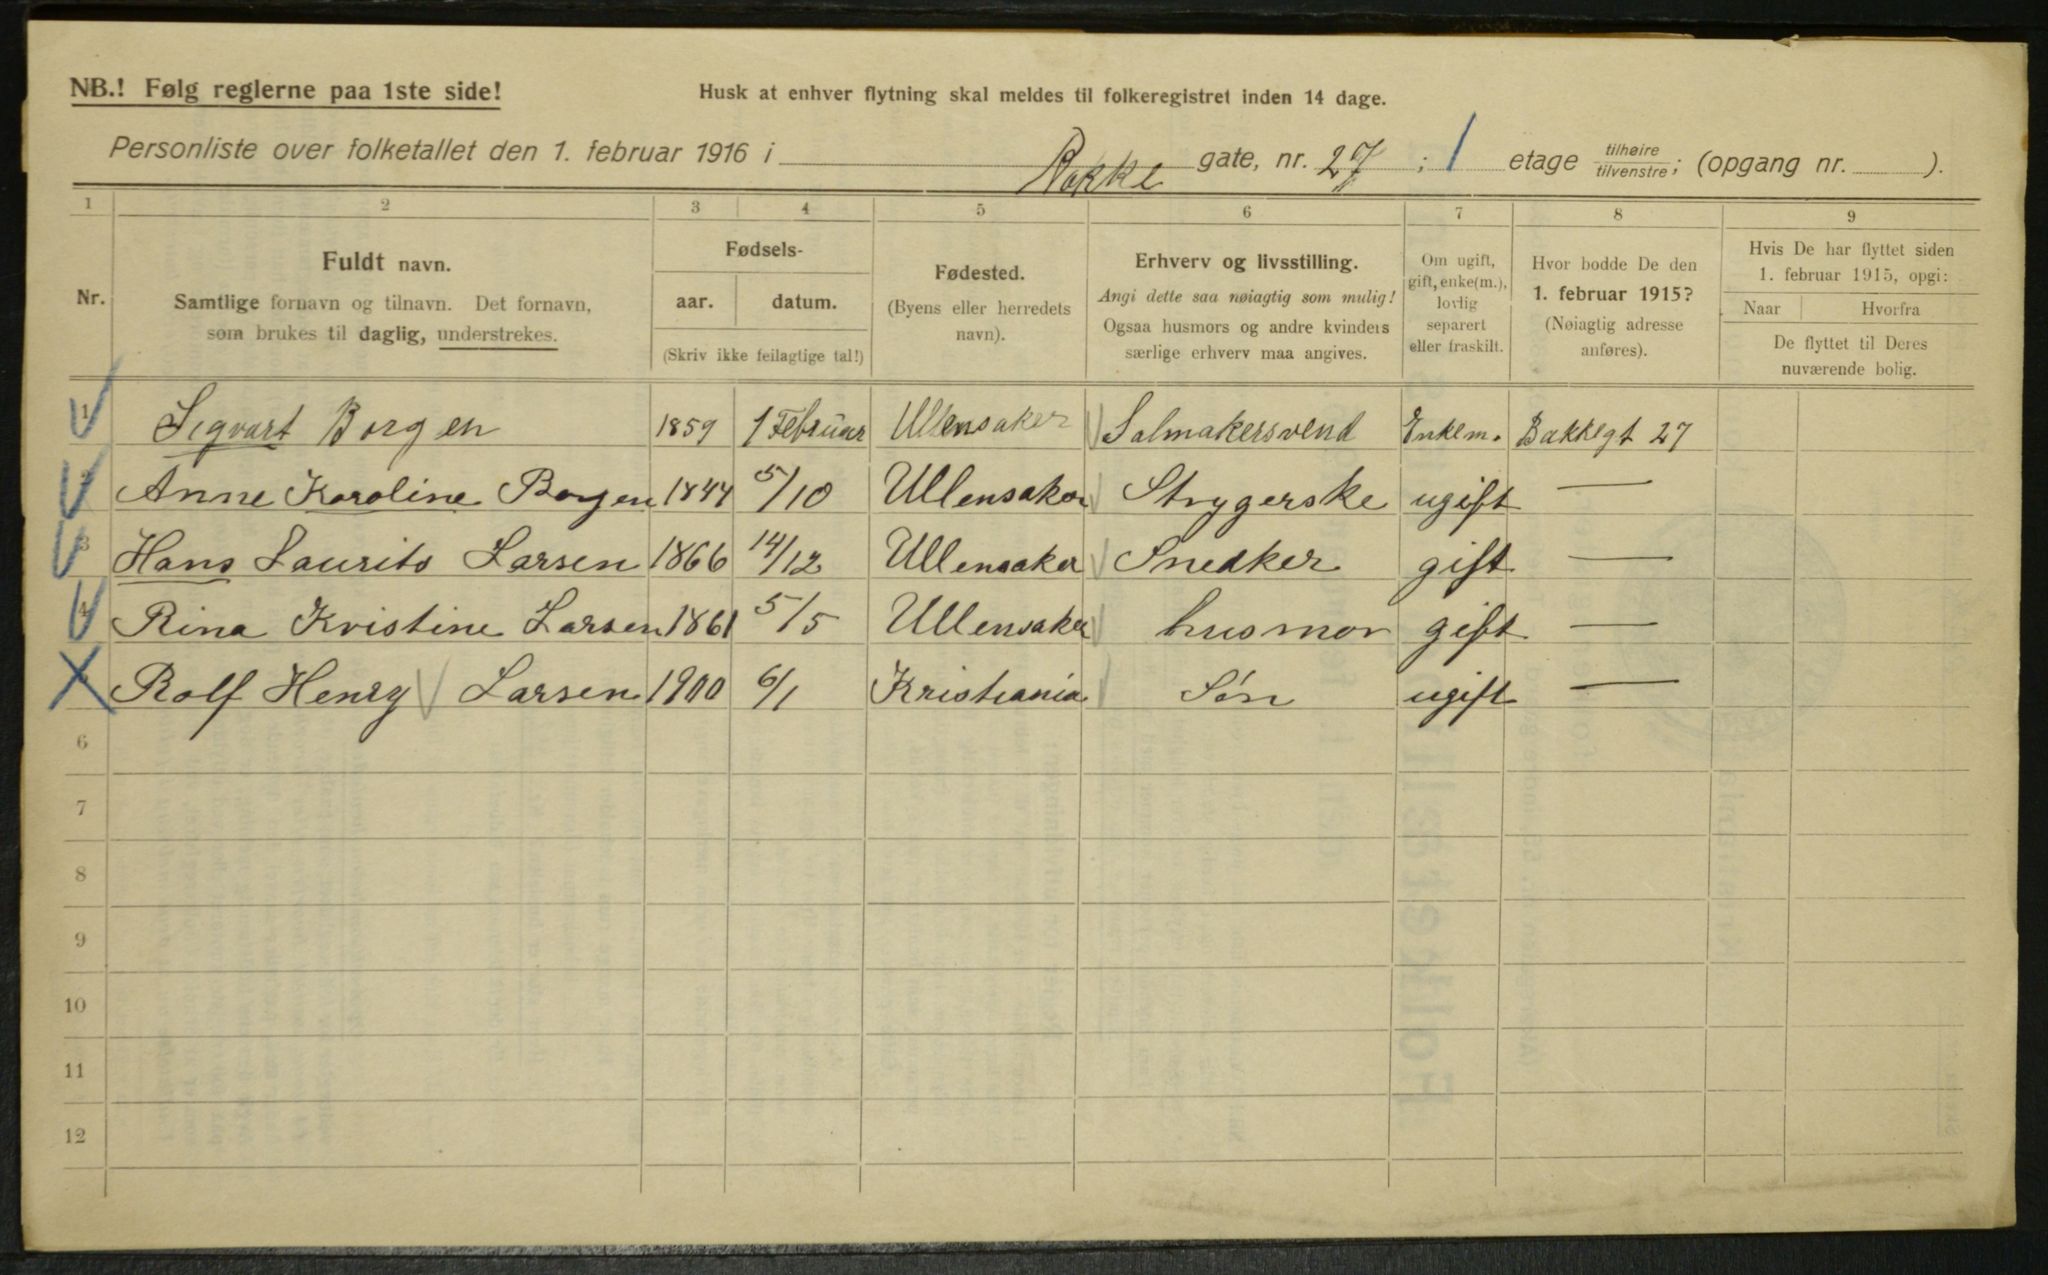 NB.! Følg reglerne paa 1ste side!
Husk at enhver flytning skal meldes til folkeregistret inden 14 dage.
Personliste over folketallet den 1. februar 1916 i Bakke gate, nr. 27 ; 1 etage tilhøire/tilvenstre; (opgang nr. ).
1 2 3 4 5 6 7 8 9
Nr.
Fuldt navn.
Samtlige fornavn og tilnavn. Det fornavn,
som brukes til daglig, understrekes.
Fødsels-
aar. datum.
(Skriv ikke feilagtige tal!)
Fødested.
(Byens eller herredets
navn).
Erhverv og livsstilling.
Angi dette saa nøiagtig som mulig!
Ogsaa husmors og andre kvinders
særlige erhverv maa angives.
Om ugift,
gift, enke(m.),
lovlig
separert
eller fraskilt.
Hvor bodde De den
1. februar 1915?
(Nøiagtig adresse
anføres).
Hvis De har flyttet siden
1. februar 1915, opgi:
Naar Hvorfra
De flyttet til Deres
nuværende bolig.
1 Sigvart Borgen 1859 1 Februar Ullensaker Salmakersvend Enkem. Bakkegt 27
2 Anne Karoline Borgen 1844 5/10 Ullensaker Strygerske ugift —
3 Hans Laurits Larsen 1866 14/12 Ullensaker Snedker gift —
4 Rina Kristine Larsen 1861 5/5 Ullensaker husmor gift —
Rolf Henry Larsen 1900 6/1 Kristiania Søn ugift —
6
7
8
9
10
11
12